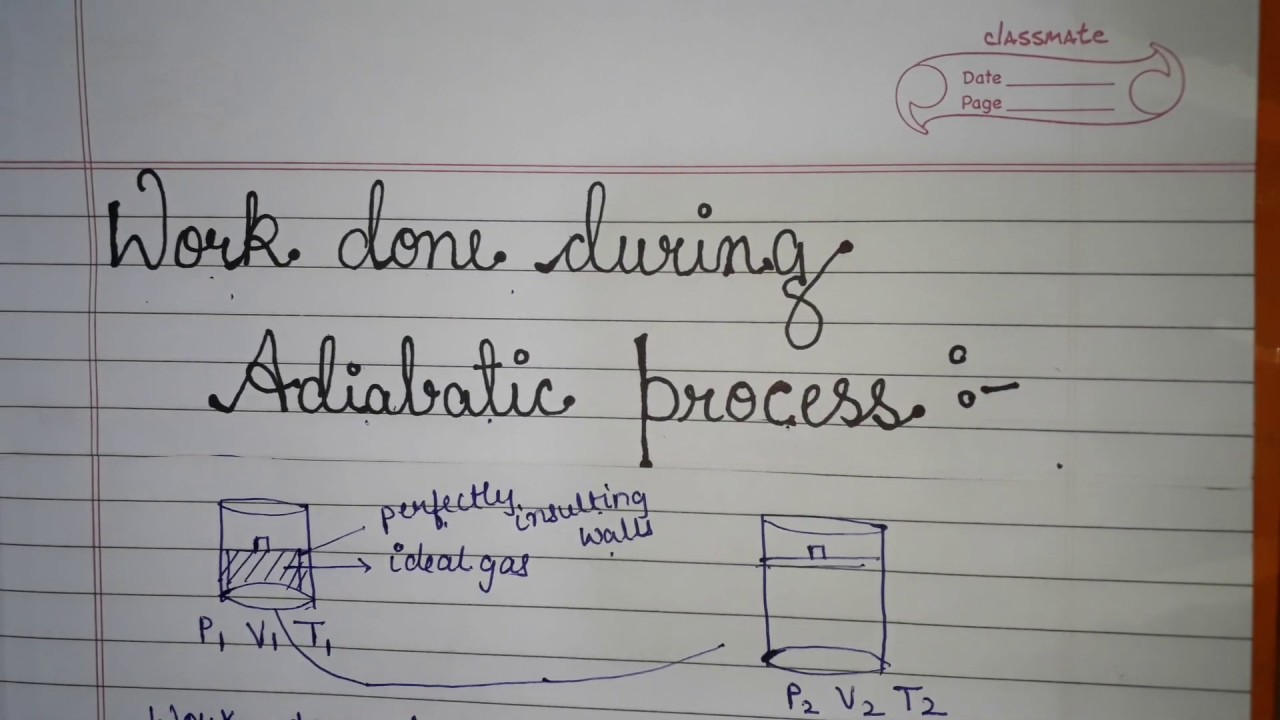 classmate
Date
Page
Work done during
Adiabatic process :-
perfectly insulting
walls
ideal gas
P1 V1 T1
P2 V2 T2
Work